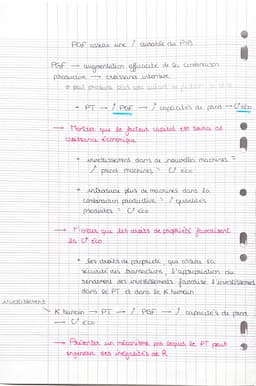 PGF assure une ↗ durable du PIB
PGF → augmentation efficacité de la combinaison
productive → croissance intensive
→ peut produire plus sans
• PT → ↗ PGF → ↗ capacités de prod → C° éco
→ Montrer que le facteur capital est source de
croissance économique
• investissement dans de nouvelles machines =
↗ machines = C° éco
• introduire plus de machines dans la
combinaison productive = ↗ quantités
produites = C° éco
→ Montrer que les droits de propriété favorisent
la C° éco
• les droits de propriété, qui assure la
sécurité des transactions, l'appropriation du
rendement des investissements favorise l'investissement
dans le PT et dans le K humain
investissement
K humain → PT → ↗ PGF → ↗ capacités de prod
→ C° éco
→ Présenter un mécanisme par lequel le PT peut
engendrer des inégalités de R